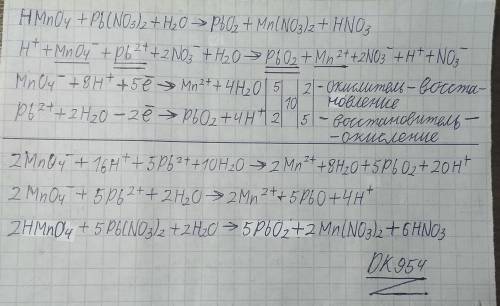 HMnO₄ + Pb(NO₃)₂ + H₂O → PbO₂ + Mn(NO₃)₂ + HNO₃
H⁺ + MnO₄⁻ + Pb²⁺ + 2NO₃⁻ + H₂O → PbO₂ + Mn²⁺ + 2NO₃⁻ + H⁺ + NO₃⁻
MnO₄⁻ + 8H⁺ + 5ē → Mn²⁺ + 4H₂O | 5 | 2 | - окислитель - восста-
10 новление
Pb²⁺ + 2H₂O - 2ē → PbO₂ + 4H⁺ | 2 | 5 | - восстановитель -
- окисление
2MnO₄⁻ + 16H⁺ + 5Pb²⁺ + 10H₂O → 2Mn²⁺ + 8H₂O + 5PbO₂ + 20H⁺
2MnO₄⁻ + 5Pb²⁺ + 2H₂O → 2Mn²⁺ + 5PbO + 4H⁺
2HMnO₄ + 5Pb(NO₃)₂ + 2H₂O → 5PbO₂ + 2Mn(NO₃)₂ + 6HNO₃
DK954